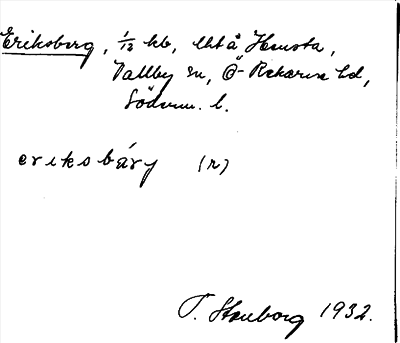 Eriksberg, 1/12 kb, lht å Hemsta,
Vallby sn, Ö-Rekarne hd,
Söderm. l.
eriksbärj (n)
T. Stenborg 1932.